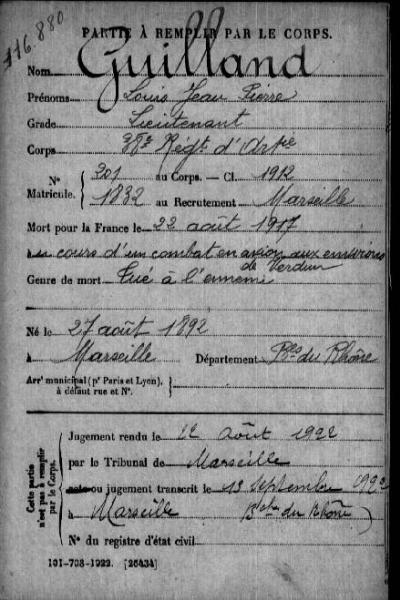 116.880
PARTIE À REMPLIR PAR LE CORPS.
Nom Guilland
Prénoms Louis Jean Pierre
Grade Lieutenant
Corps 38e Régt d'Artie
N° Matricule. { 301 au Corps. — Cl. 1912
1832 au Recrutement Marseille
Mort pour la France le 22 août 1917
au cours d'un combat en avion aux environs
de Verdun
Genre de mort Tué à l'ennemi
Né le 27 août 1892
à Marseille Département Bes du Rhône
Arrt municipal (pr Paris et Lyon), à défaut rue et N°. {
Cette partie n'est pas à remplir par le Corps.
Jugement rendu le 22 Août 1922
par le Tribunal de Marseille
acte ou jugement transcrit le 13 Septembre 1922
à Marseille (Bches du Rhône)
N° du registre d'état civil
101-708-1922. [26434]